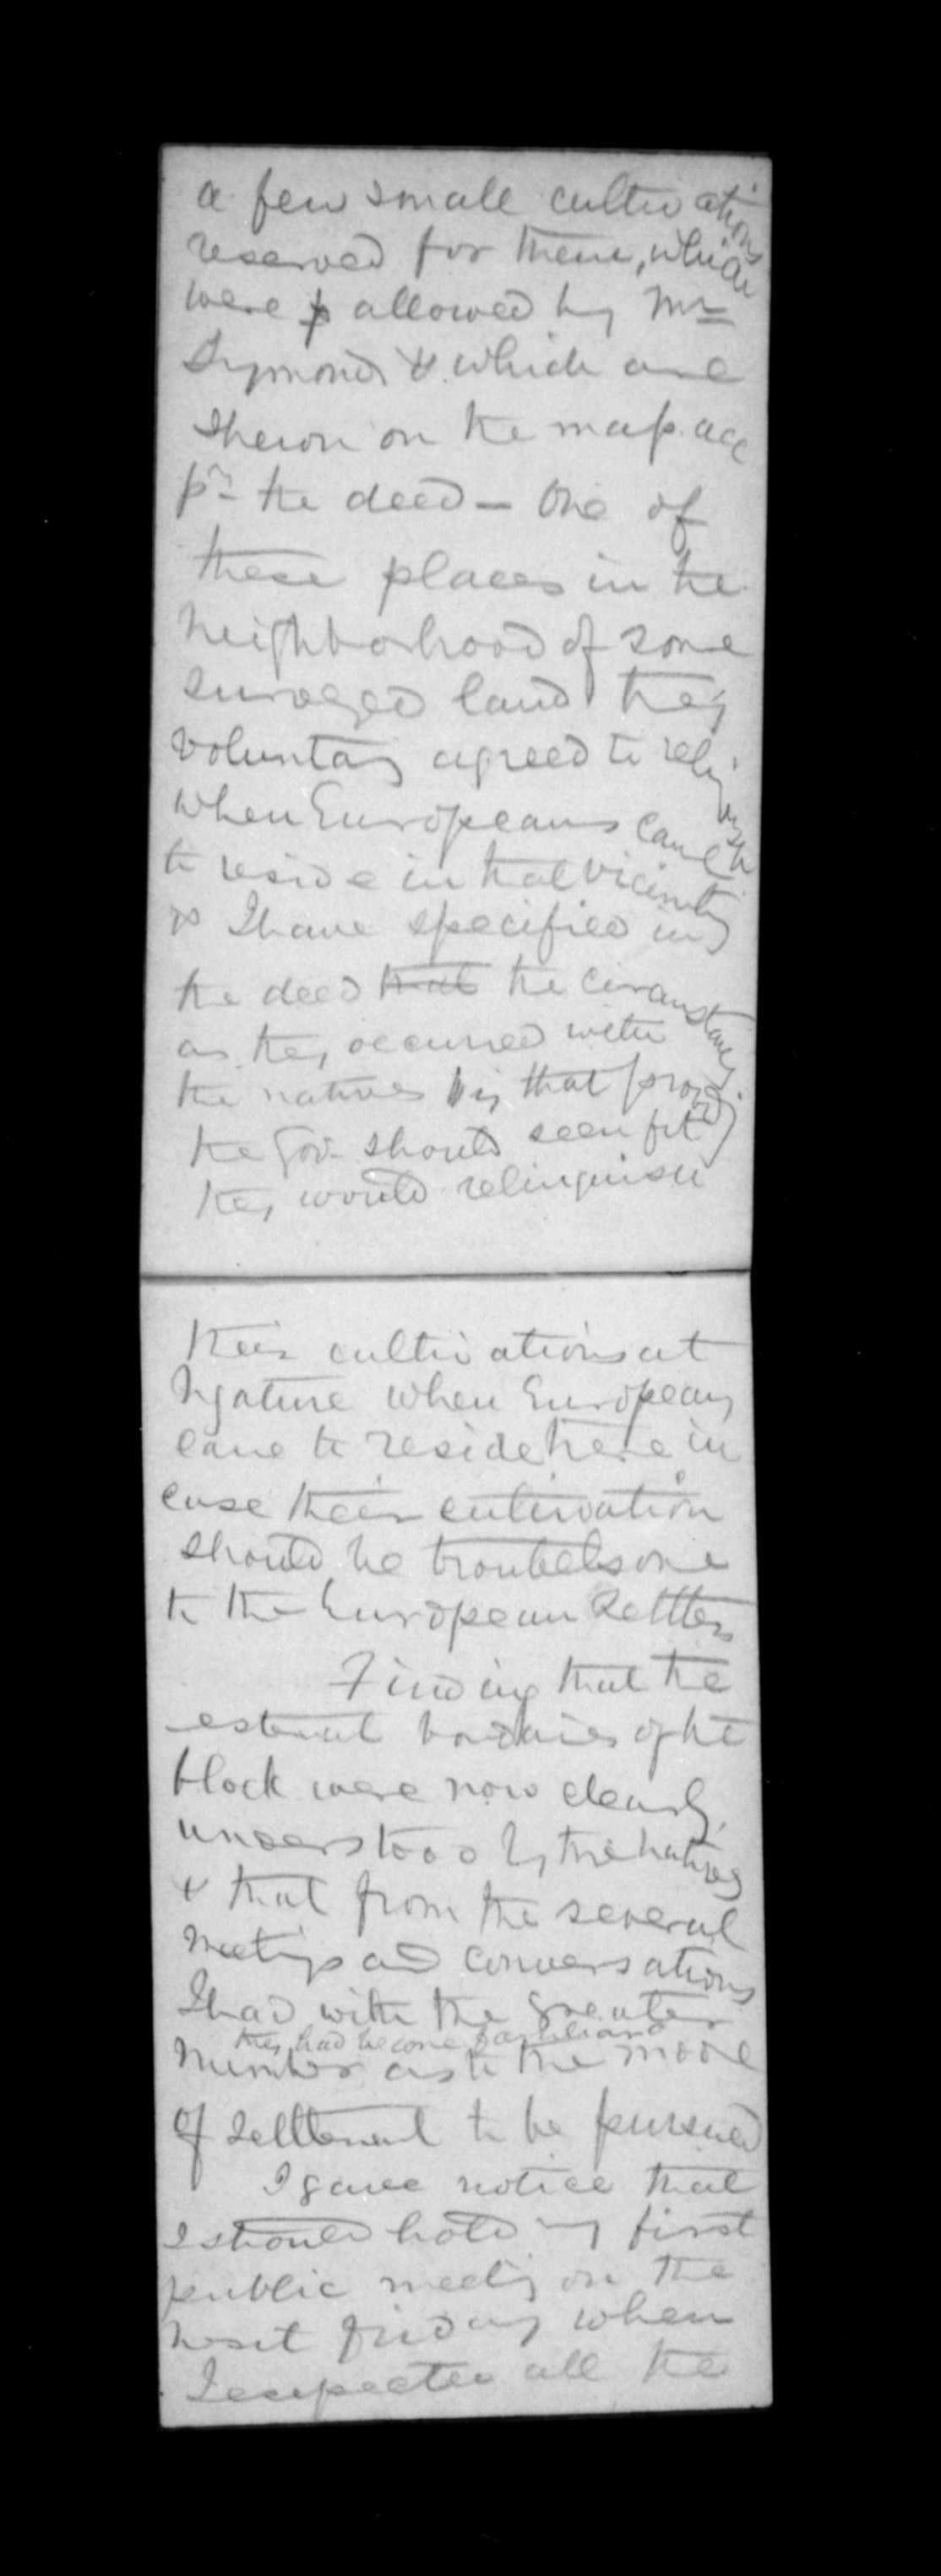 a few small cultivations
reserved for them, which
were allowed by Mr
Symonds & which are
shewn on the map acc
pr the deed — One of
these places in the
neighborhood of some
surveyed land they
voluntary agreed to relinquish
when Europeans came
to reside in that vicinity
& I have specified in
the deed that the circumstances
as they occurred with
the natives that
the Gov. should seem fit
they would relinquish
their cultivations at
Ngature when Europeans
came to reside here in
case their cultivation
should be troubelsome
to the European Settlers
Finding that the
external of the
block were now clearly
understood by the natives
& that from the several
meetings and conversations
I had with the greater
they had become familiar
number as to the mode
of settlement to be pursued
I gave notice that
I should hold my first
public meeting on the
next friday when
I expected all the